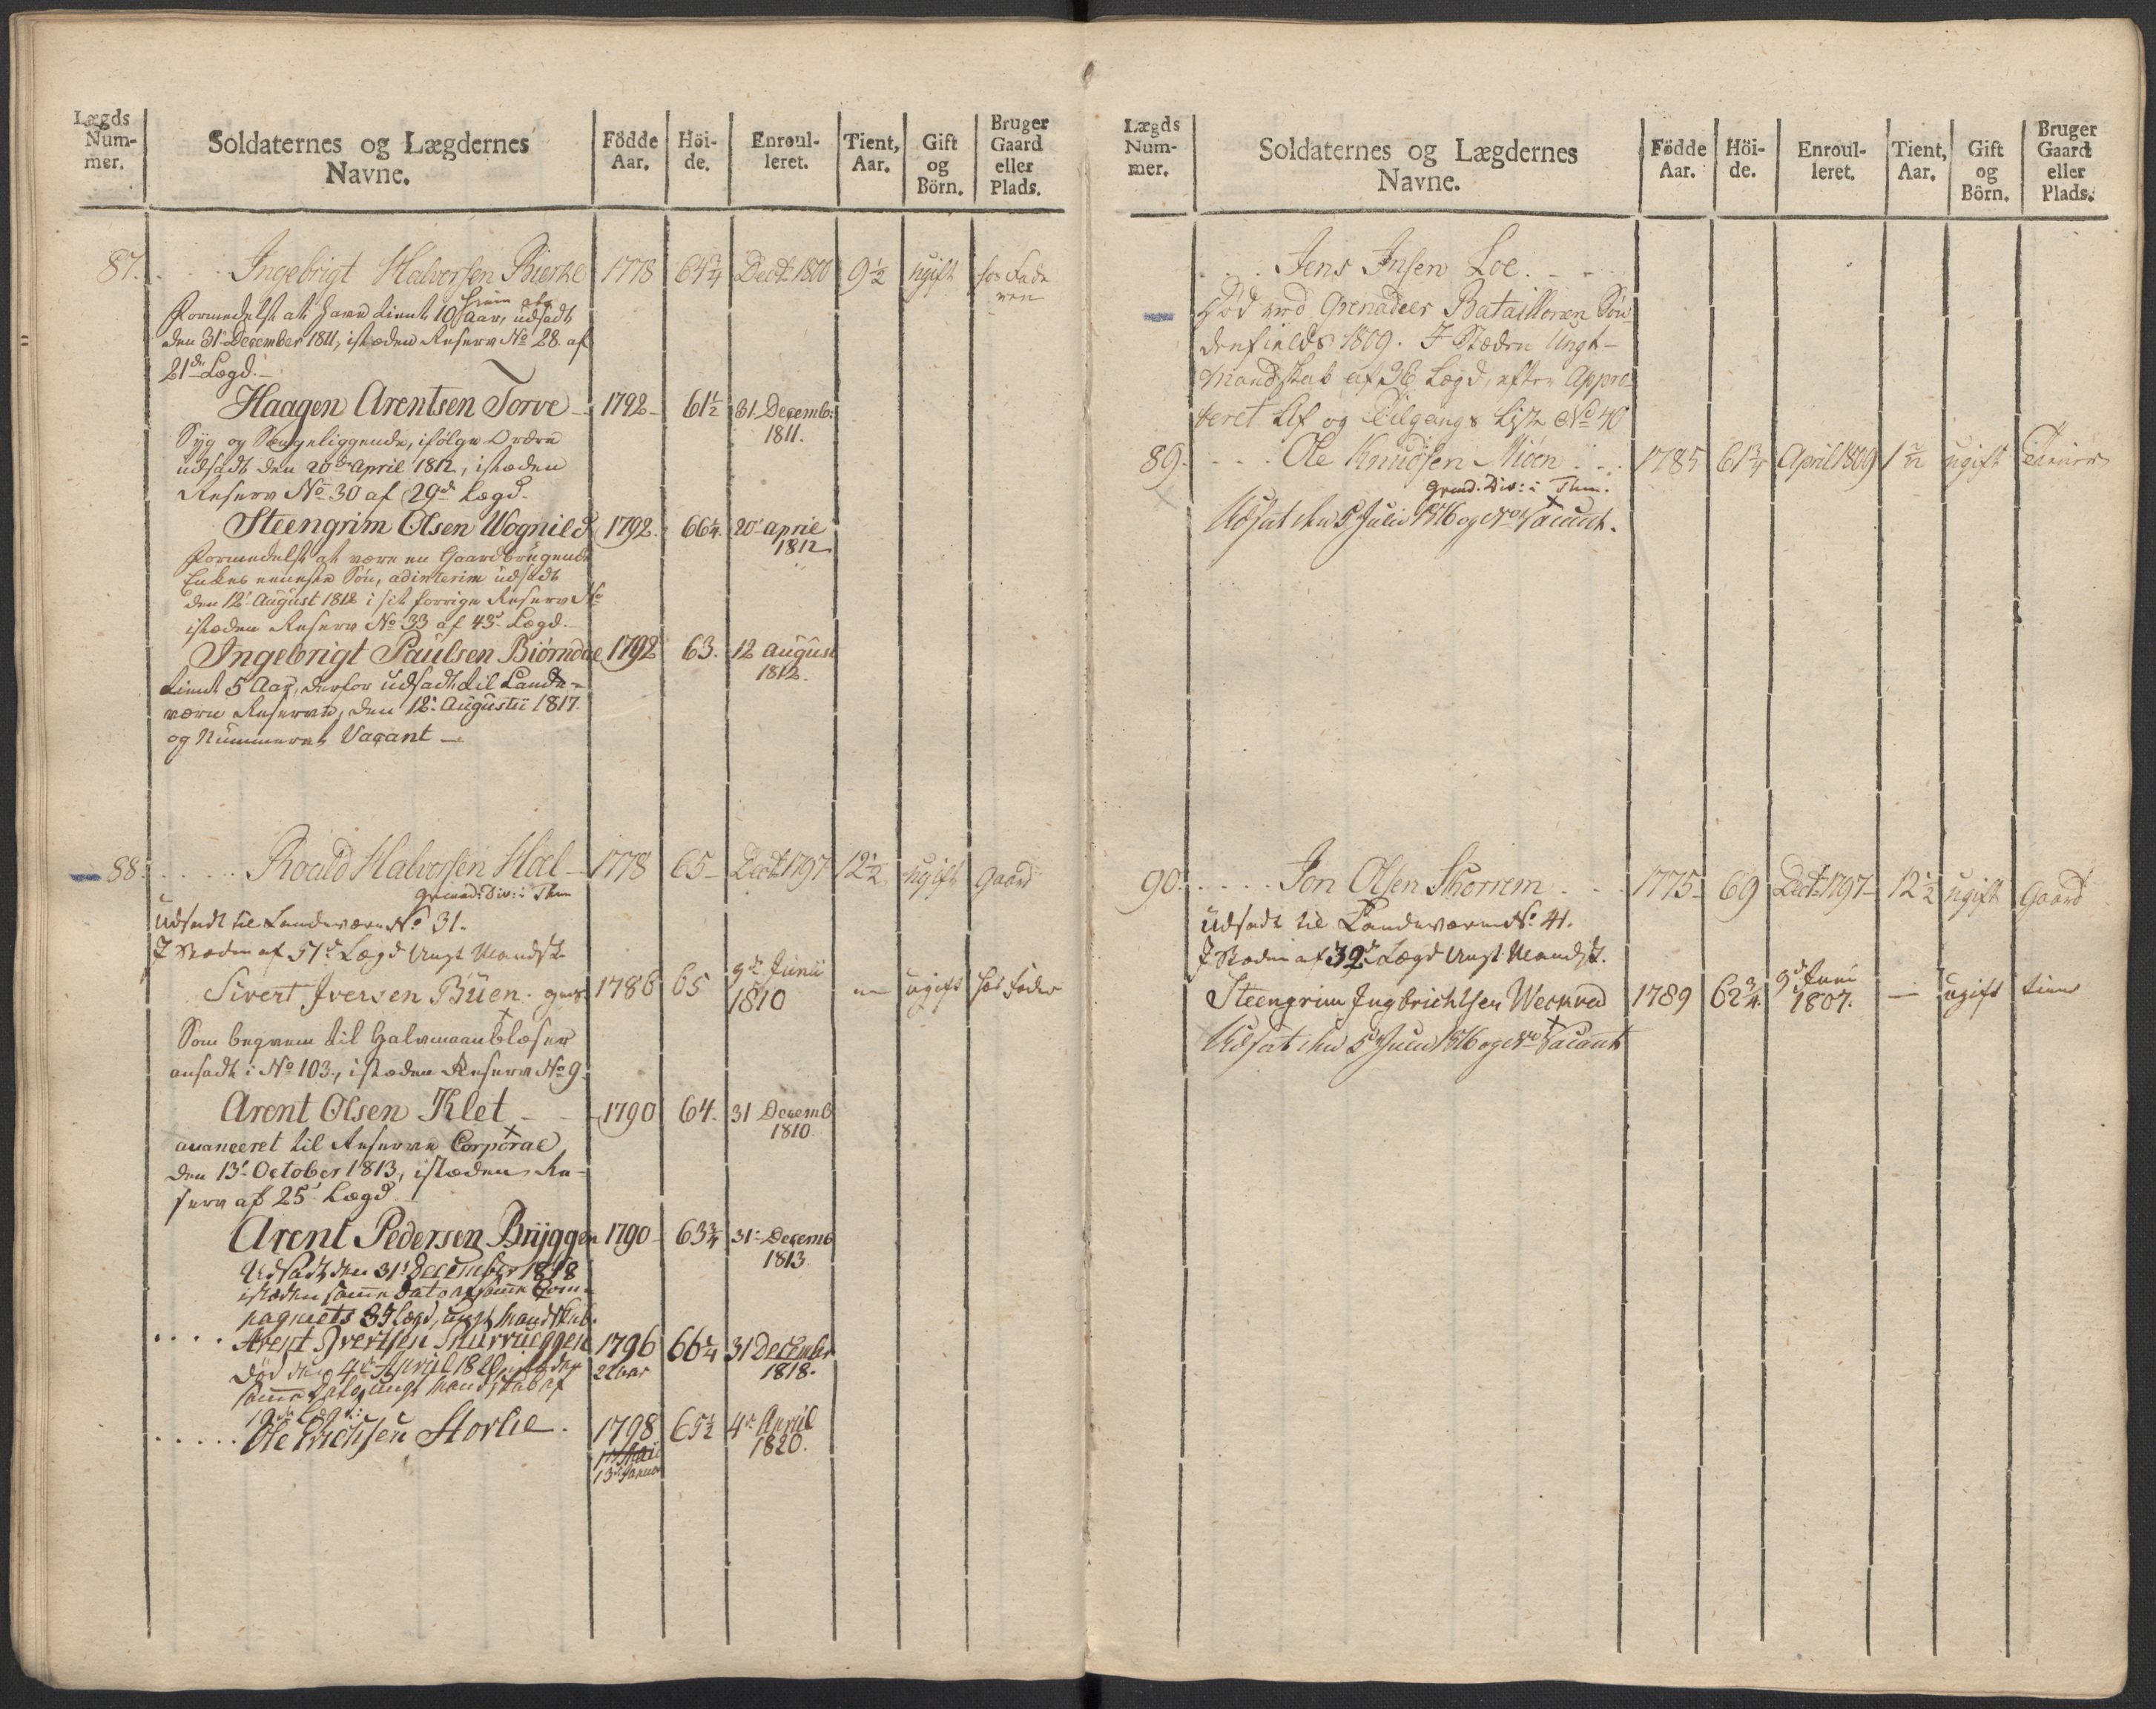 Lægds Num- mer.
Soldaternes og Lægdernes Navne.
Födde Aar.
Höi- de.
Enroul- leret.
Tient, Aar.
Gift og Börn.
Bruger Gaard eller Plads.
87. Ingebrigt Halvorsen Bierke 1778 64 3/4 Decbr 1800 9 1/2 ugift hos Fade ren
Formedelst at have tient 10 Aar, udsadt
den 31 December 1811, isteden Reserv No 28 af
21de Lægd.
Haagen Arentsen Torve 1792 61 1/2 31 Decemb: 1811.
Syg og Sengeliggende, ifølge Ordre
udsadt den 20de April 1812, isteden
Reserv No 30 af 29de Lægd.
Steengrim Olsen Wognild 1792. 66 1/4. 20 April 1812
Formedelst at være en Gaardbrugende
Enkes eeneste Søn, ad interim udsadt
den 12 August 1812 i sit forrige Reserv No
isteden Reserv No 33 af 43 Lægd.
Ingebrigt Paulsen Biörndal 1792 63. 12 August 1812.
tient 5 Aar, derfor udsadt til Lande-
værn Reserven, den 12 Augustii 1817.
og Nummeret Vacant
88. Roald Halvorsen Hoel 1778 65 Decbr 1797 12 1/2 ugift Gaard
Grenad: Div: i Thm
Udsadt til Landeværn No 31.
I Stæden af 51de Lægd Ungt Mandsk.
Sivert Iversen Büen. 1786 65 9de Junii 1810 ugift hos Fader
Som beqvem til Halvmaanblæser
ansadt i No 103, isteden Reserv No 9.
Arent Olsen Klet 1790 64. 31 Decemb 1810.
avanceret til Reserve Corporal
den 13 October 1813, isteden Re-
serv af 25 Lægd
Arent Pedersen Brÿggen 1790 63 3/4 31 Decemb 1813.
Udsadt den 31 December 1818
isteden samme Dato af samme Com-
pagniets 89 Lægd, ungt Mandskab.
Arent Ivertsen Snurruggen 1796 66 1/4 31 December 1818.
22 Aar
Död den 4de April 1820, isteden
samme Dato, ungt Mandskab af
19de Lægd:
Ole Erichsen Storlie. 1798 65 1/2 4de April 1820.
13de Januar
Lægds Num- mer.
Soldaternes og Lægdernes Navne.
Födde Aar.
Höi- de.
Enroul- leret.
Tient, Aar.
Gift og Börn.
Bruger Gaard eller Plads.
Jens Jnsen Loe.
Død ved Grenadeer Batailloren Søn-
denfields 1809. I Stæden Ungt-
Mandskab af 36 Lægd, efter Appro-
beret Af og Tilgangs Liste No 40
89. Ole Knudsen Miöen 1785 61 3/4 April 1809 ugift Tiener
Grend. Div: i Thm.
Udsat den 5 Julii 1816 og Nro Vacant.
90. Jon Olsen Skorrem 1775 69 Decbr 1797 12 1/2 ugift Gaard
Udsadt til Landeværn No. 41.
I Stæden af 32de Lægd Ungt Mandsk.
Steengrim Ingbrichtsen Weckved 1789 62 3/4. 9de Juni 1807. — ugift tiene
Udsat den 5 Julii 1816 og Nro Vacant